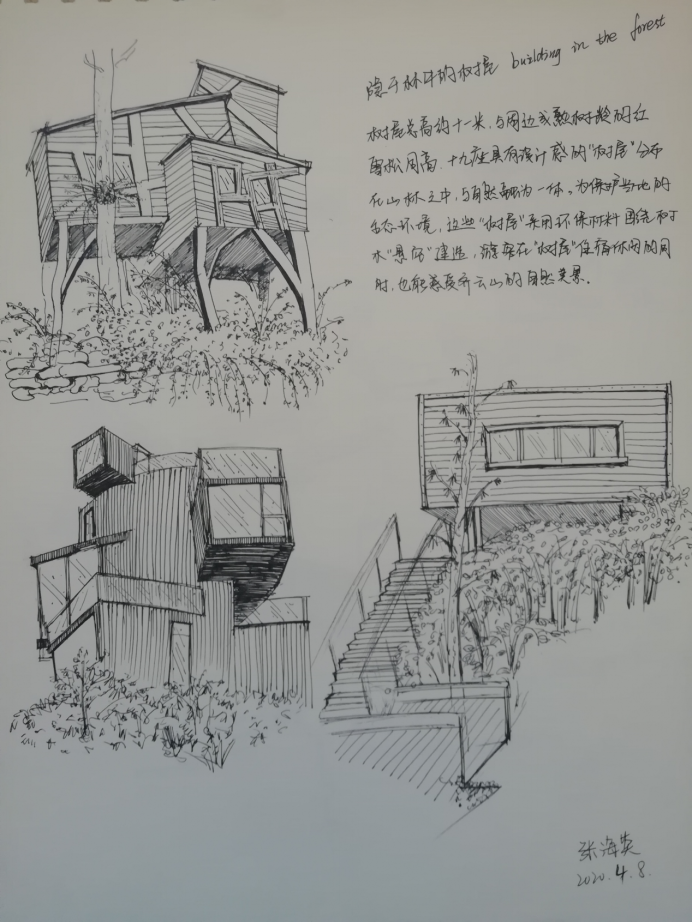 隐于林中的树屋 building in the forest
树屋总高约十一米，与周边成熟树龄的红
雪松同高，十九座具有设计感的“树屋”分布
在山林之中，与自然融为一体。为保护当地的
生态环境，这些“树屋”采用环保材料围绕树
木“悬空”建造，游客在“树屋”住宿休闲的同
时，也能感受齐云山的自然美景。
张海英
2020.4.8.